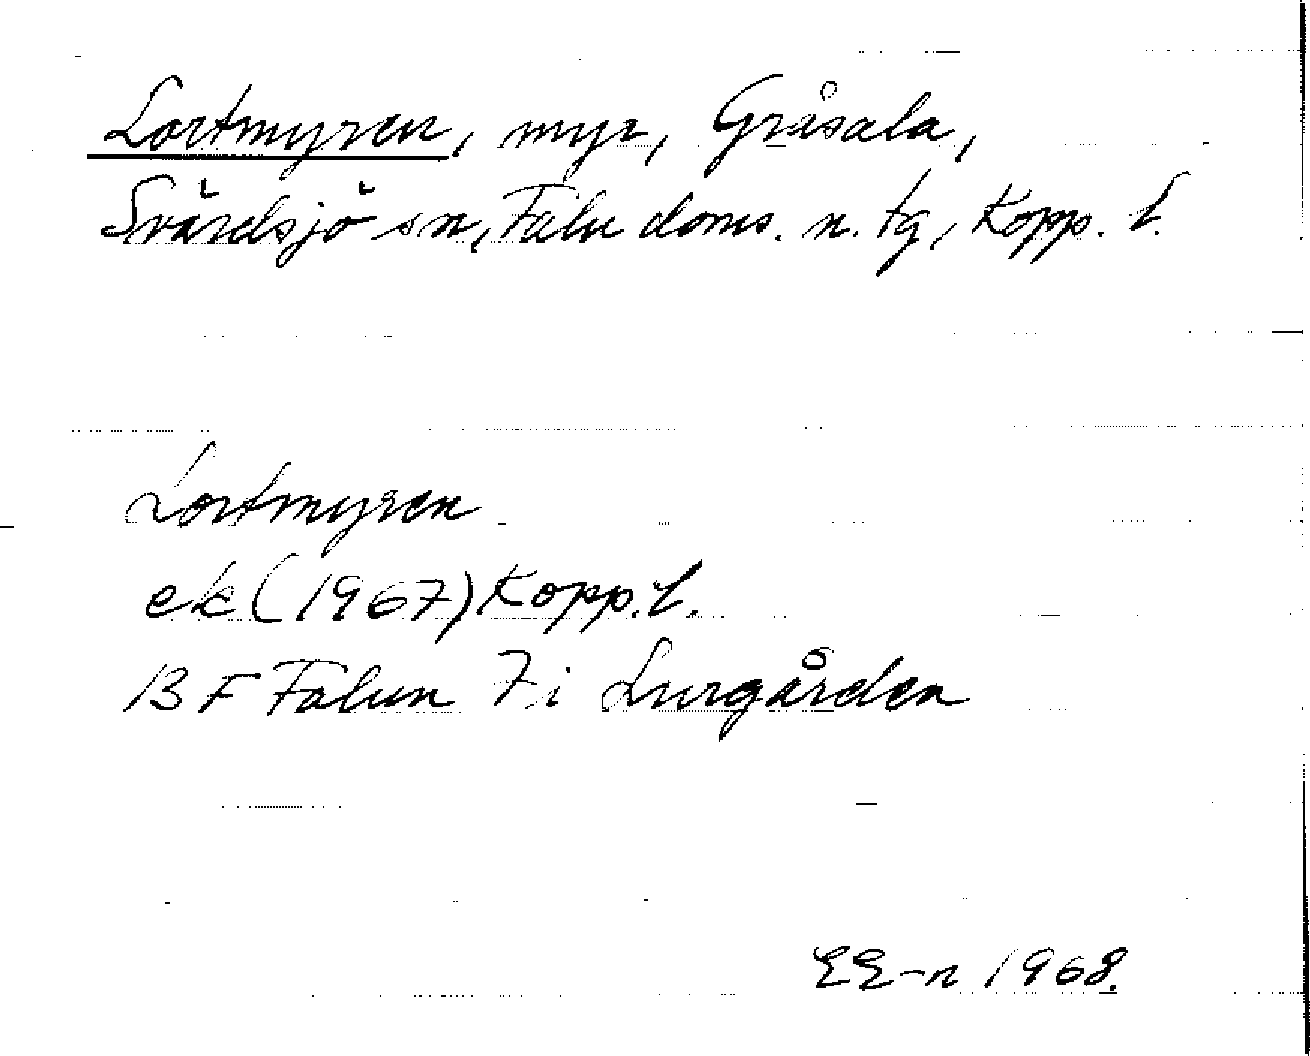 Lortmyren, myr, Gråsala,
Svärdsjö sn, Falu doms. n. tg, Kopp. l.
Lortmyren
ek (1967) Kopp. l.
13 F Falun 7 i Lurgården
EE-n 1968.